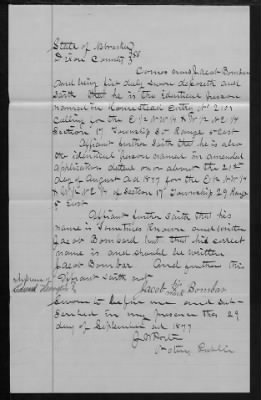 State of Nebraska } ss
Dixon County }
Comes now Jacob Bombar
and being first duly sworn deposeth and
saith that he is the identical person
named in Homestead Entry No 2101
calling for the E/2 N W/4 & W/2 N E/4
Section 17 Township 30 Range 5 East
Affiant further saith that he is also
the identical person named in amended
application dated on or about the 21st
day of August A.D. 1877 for the E/2 N W/4
& W/2 N E/4 of Section 17 Township 29 Range
5 East
Affiant further saith that his
name is sometimes known and written
Jacob Bombard but that his correct
name is and should be written
Jacob Bombar. And further this
Affiant saith not
Jacob his mark Bombar
Sworn to before me and sub-
scribed in my presence this 29
day of September A.D. 1877
Notary Public